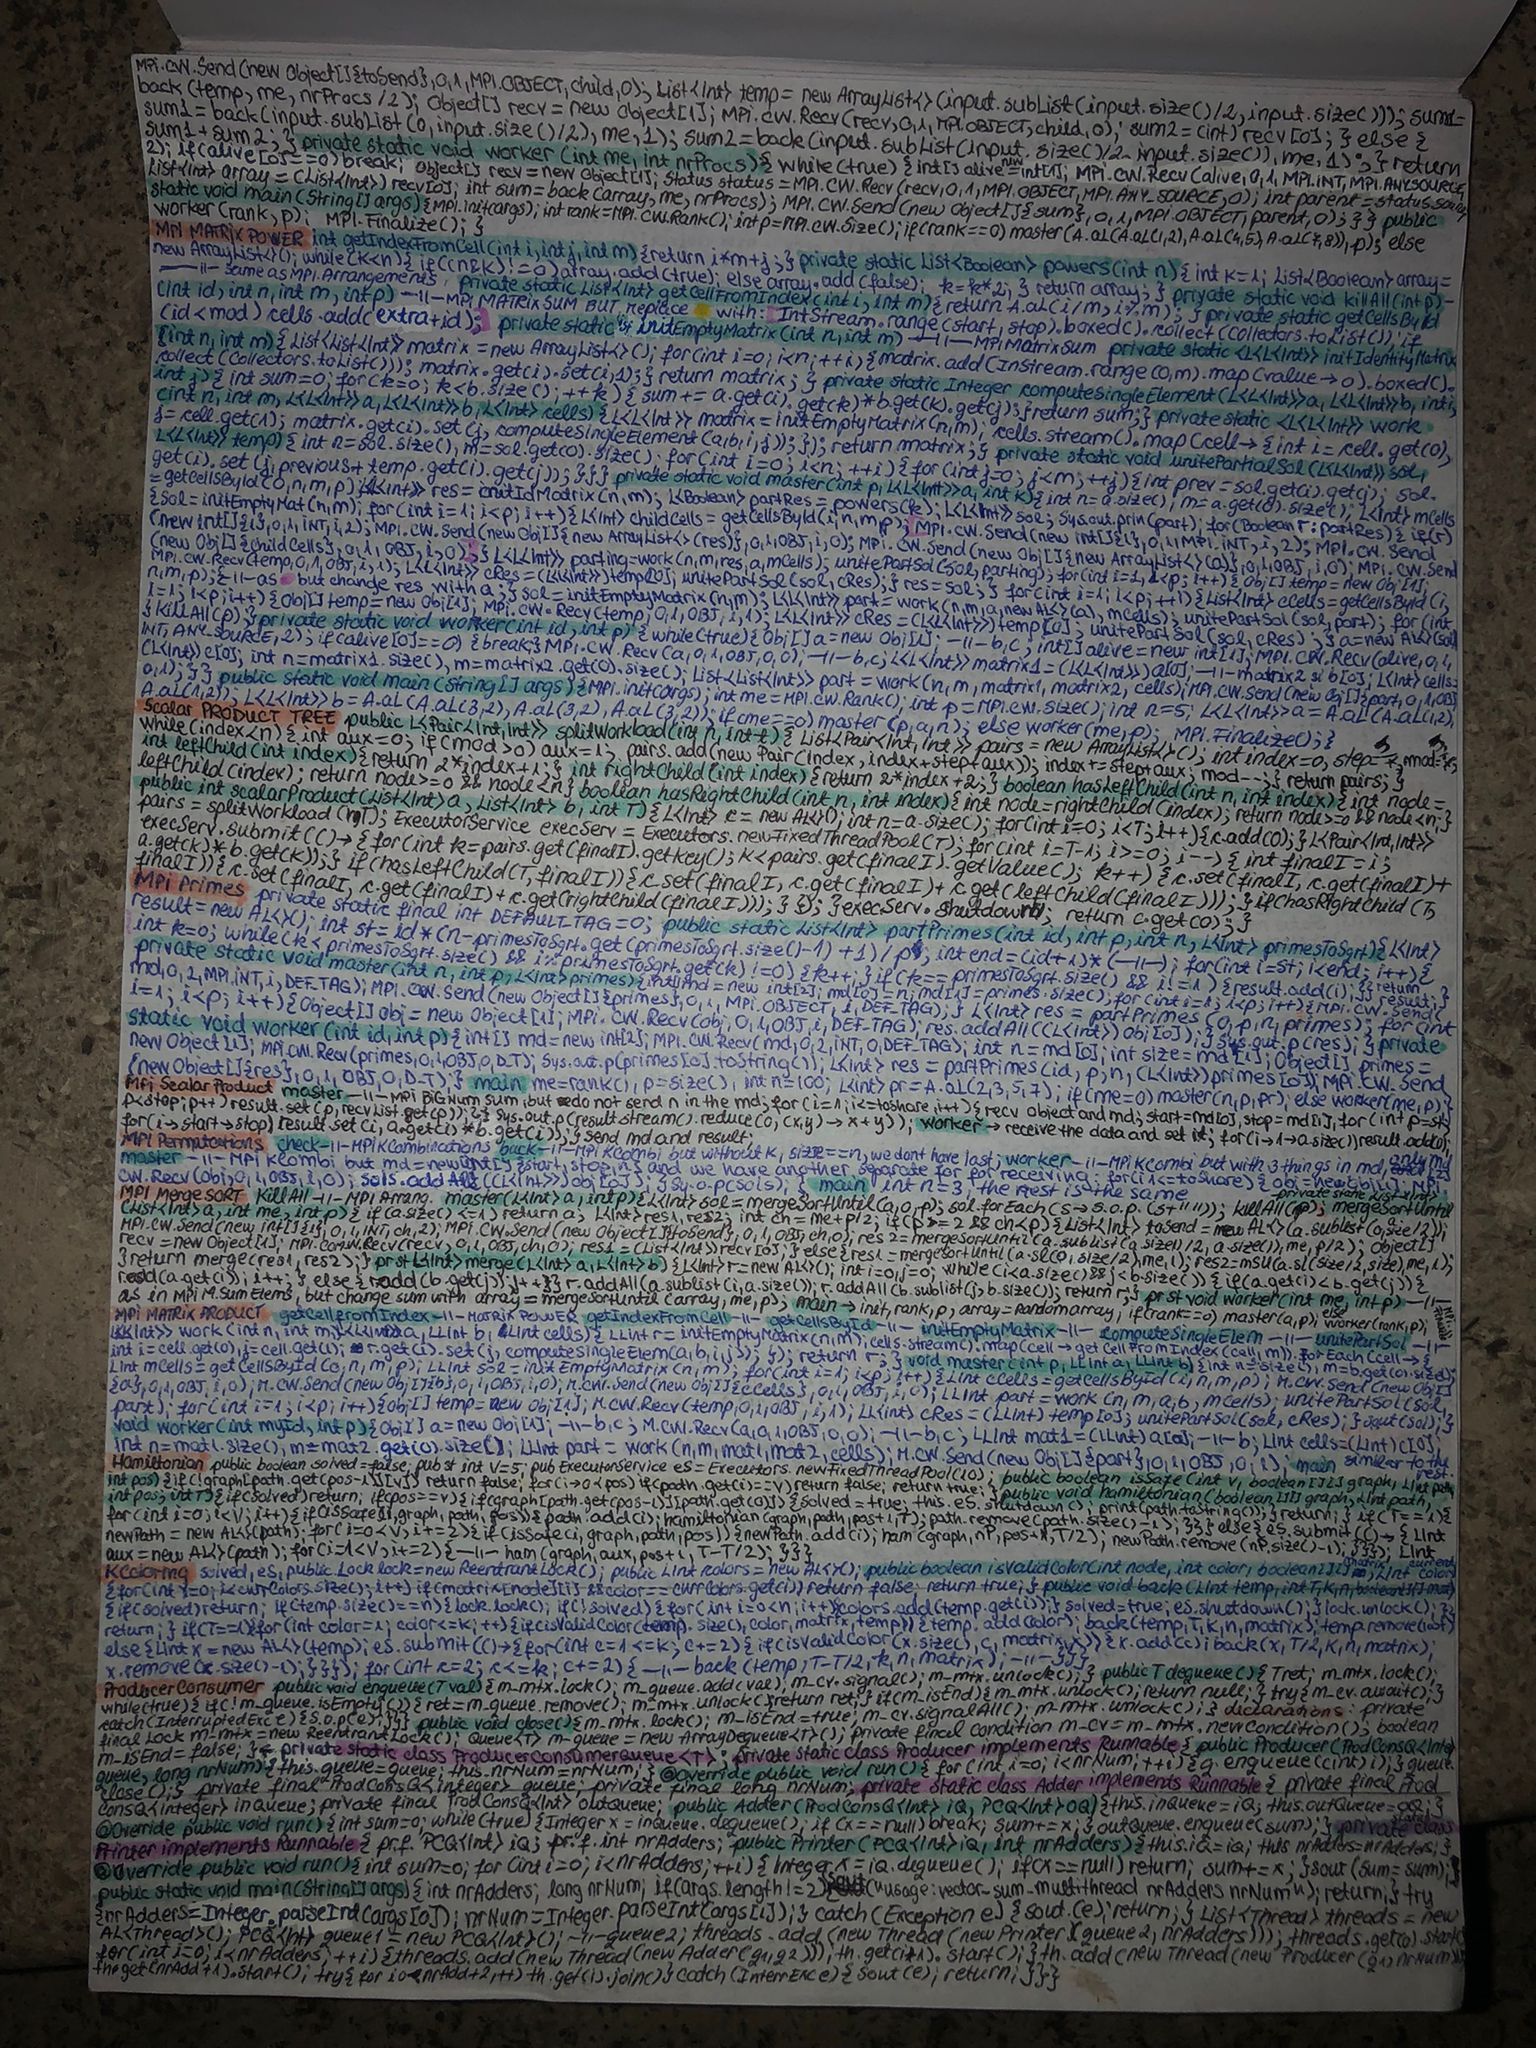 MPI.CW.Send(new Object[]{toSend},0,1,MPI.OBJECT,child,0); List<Int> temp = new ArrayList<>(input.subList(input.size()/2, input.size())); sum1=
back(temp, me, nrProcs/2); Object[] recv = new Object[1]; MPI.CW.Recv(recv,0,1,MPI.OBJECT,child,0); sum2=(int) recv[0]; } else {
sum1=back(input.subList(0,input.size()/2),me,1); sum2=back(input.subList(input.size()/2, input.size()),me,1); } return
sum1+sum2; } private static void worker (int me, int nrProcs){ while(true) {int[] alive=new int[1]; MPI.CW.Recv(alive,0,1,MPI.INT,MPI.ANY_SOURCE,
2); if(alive[0]==0) break; Object[] recv = new Object[1]; Status status=MPI.CW.Recv(recv,0,1,MPI.OBJECT,MPI.ANY_SOURCE,0); int parent=status.source;
List<Int> array = (List<Int>) recv[0]; int sum=back(array,me,nrProcs); MPI.CW.Send(new Object[]{sum},0,1,MPI.OBJECT,parent,0); } } public
static void main(String[] args){MPI.init(args); int rank=MPI.CW.Rank(); int p=MPI.CW.Size(); if(rank==0) master(A.aL(A.aL(1,2),A.aL(4,5),A.aL(7,8)),p); else
worker(rank,p); MPI.Finalize(); }
MPI MATRIX POWER int getIndexFromCell(int i,int j,int m){return i*m+j;} private static List<Boolean> powers(int n){ int k=1; List<Boolean> array=
new ArrayList<>(); while(k<n){ if((n&k)!=0) array.add(true); else array.add(false); k=k*2; } return array; } private static void killAll(int p)-
—11— same as MPI.Arrangements, private static List<Int> getCellFromIndex(int i,int m){return A.aL(i/m,i%m); } private static getCellsById
(int id, int n, int m, int p) —11—MPI MATRIX SUM BUT replace with: IntStream.range(start, stop).boxed().collect(Collectors.toList()); if
(id<mod) cells.add(extra+id); private static initEmptyMatrix(int n,int m) —11—MPI MatrixSum private static <L<L<Int>> initIdentityMatrix
(int n,int m){List<List<Int>> matrix=new ArrayList<>(); for(int i=0;i<n;++i){matrix.add(InStream.range(0,m).map(value→0).boxed().
collect(Collectors.toList())); matrix.get(i).set(i,1);} return matrix; } private static Integer computeSingleElement(L<L<Int>>a, L<L<Int>>b, int i,
int j){int sum=0; for(k=0; k<b.size(); ++k) { sum += a.get(i).get(k)*b.get(k).get(j);}return sum;} private static <L<L<Int>> work
(int n, int m, L<L<Int>>a, L<L<Int>>b, L<Int> cells){L<L<Int>> matrix=initEmptyMatrix(n,m); cells.stream().map(cell→{int i=cell.get(0),
j=cell.get(1); matrix.get(i).set(j, computeSingleElement(a,b,i,j));}); return matrix;} private static void unitePartialSol(L<L<Int>> sol,
L<L<Int>> temp){int n=sol.size(), m=sol.get(0).size(); for(int i=0; i<n; ++i){for(int j=0; j<m; ++j){int prev=sol.get(i).get(j); sol.
get(i).set(j,previous+temp.get(i).get(j));}}} private static void master(int p, L<L<Int>>a, int k){int n=a.size(), m=a.get(0).size(); L<Int> mCells
=getCellsById(0,n,m,p); L<L<Int>> res=initIdMatrix(n,m); L<Boolean> partRes=powers(k); L<L<Int>> sol; Sys.out.prin(part); for(Boolean r:partRes){if(r)
{sol=initEmptyMat(n,m); for(int i=1;i<p;i++){L<Int> childCells=getCellsById(i,n,m,p); MPI.CW.Send(new int[]{1},0,1,MPI.INT,i,2); MPI.CW.Send
(new Obj[]{new ArrayList<>(res)},0,1,OBJ,i,0); MPI.CW.Send(new Obj[]{new ArrayList<>(a)},0,1,OBJ,i,0); MPI.CW.Send
(new Obj[]{childCells},0,1,OBJ,i,0); } L<L<Int>> parting=work(n,m,res,a,mCells); unitePartSol(sol,parting); for(int i=1;i<p;i++){Obj[] temp=new Obj[1];
MPI.CW.Recv(temp,0,1,OBJ,i,1); L<L<Int>> cRes=(L<L<Int>>)temp[0]; unitePartSol(sol,cRes);} res=sol;} for(int i=1;i<p;++i){List<Int> cCells=getCellsById(i,
n,m,p);{—11—as but change res with a;} sol=initEmptyMatrix(n,m); L<L<Int>> part=work(n,m,a,new AL<>(a),mCells); unitePartSol(sol,part); for(int
i=1;i<p;i++){Obj[] temp=new Obj[1]; MPI.CW.Recv(temp,0,1,OBJ,i,1); L<L<Int>> cRes=(L<L<Int>>)temp[0]; unitePartSol(sol,cRes); } a=new AL<>(sol)
} killAll(p);} private static void worker(int id,int p){while(true){Obj[] a=new Obj[1]; —11—b,c; int[] alive=new int[1]; MPI.CW.Recv(alive,0,1,
INT,ANY_SOURCE,2); if(alive[0]==0) {break;} MPI.CW.Recv(a,0,1,OBJ,0,0); —11—b,c; L<L<Int>> matrix1=(L<L<Int>>)a[0];—11—matrix2 si b[0]; L<Int> cells=
(L<Int>)c[0]; int n=matrix1.size(), m=matrix2.get(0).size(); List<List<Int>> part=work(n,m,matrix1,matrix2,cells); MPI.CW.Send(new Obj[]{part,0,1,OBJ
0,1);}} public static void main(String[] args){MPI.init(args); int me=MPI.CW.Rank(); int p=MPI.CW.size(); int n=5; L<L<Int>> a=A.aL(A.aL(1,2),
A.aL(1,2)); L<L<Int>> b=A.aL(A.aL(3,2),A.aL(3,2),A.aL(3,2)); if(me==0) master(p,a,n); else worker(me,p); MPI.Finalize(); }
Scalar PRODUCT TREE public L<Pair<Int,Int>> splitWorkload(int n,int t){List<Pair<Int,Int>> pairs=new ArrayList<>(); int index=0, step=
while(index<n){int aux=0; if(mod>0) aux=1; pairs.add(new Pair(index, index+step+aux)); index+=step+aux; mod--; } return pairs; }
int leftChild(int index){return 2*index+1;} int rightChild(int index){return 2*index+2;} boolean hasLeftChild(int n,int index){int node=
leftChild(index); return node>=0 && node<n} boolean hasRightChild(int n, int index){int node=rightChild(index); return node>=0 && node<n;}
public int scalarProduct(List<Int>a, List<Int> b, int T){L<Int> c=new AL<>(); int n=a.size(); for(int i=0; i<T;i++){c.add(0);} L<Pair<Int,Int>>
pairs=splitWorkload(n,T); ExecutorService execServ=Executors.newFixedThreadPool(T); for(int i=T-1; i>=0; i--){int finalI=i;
execServ.submit(()→{for(int k=pairs.get(finalI).getKey(); k<pairs.get(finalI).getValue(); k++){c.set(finalI, c.get(finalI)+
a.get(k)*b.get(k));} if(hasLeftChild(T,finalI)){c.set(finalI, c.get(finalI)+c.get(leftChild(finalI)));} if(hasRightChild(T,
finalI)){c.set(finalI, c.get(finalI)+c.get(rightChild(finalI)));} }); } execServ.shutdown(); return c.get(0); }
MPI Primes private static final int DEFAULT_TAG=0; public static List<Int> partPrimes(int id,int p,int n, L<Int> primesToSqrt){L<Int>
result=new AL<>(); int st=id*(n-primesToSqrt.get(primesToSqrt.size()-1)+1)/p; int end=(id+1)*(—11—); for(int i=st; i<end; i++){
int k=0; while(k<primesToSqrt.size() && i%primesToSqrt.get(k)!=0){k++;} if(k==primesToSqrt.size() && i!=1){result.add(i);}} return result;}
private static void master(int n, int p, L<Int> primes){int[]md=new int[2]; md[0]=n; md[1]=primes.size(); for(int i=1;i<p;i++){MPI.CW.Send(
md,0,2,MPI.INT,i,DEF_TAG); MPI.CW.Send(new Object[]{primes},0,1,MPI.OBJECT,i,DEF_TAG);} L<Int> res=partPrimes(0,p,n,primes); for(int
i=1; i<p; i++){Object[] obj=new Object[1]; MPI.CW.Recv(obj,0,1,OBJ,i,DEF_TAG); res.addAll((L<Int>)obj[0]);} Sys.out.p(res);} private
static void worker(int id,int p){int[] md=new int[2]; MPI.CW.Recv(md,0,2,INT,0,DEF_TAG); int n=md[0]; int size=md[1]; Object[] primes=
new Object[1]; MPI.CW.Recv(primes,0,1,OBJ,0,D_T); Sys.out.p(primes[0].toString()); L<Int> res=partPrimes(id,p,n,(L<Int>)primes[0]); MPI.CW.Send
(new Object[]{res},0,1,OBJ,0,D_T);} main me=rank(), p=size(), int n=100; L<Int> pr=A.aL(2,3,5,7); if(me==0) master(n,p,pr); else worker(me,p)}
MPI Scalar Product master—11—MPI BIGNum sum, but do not send n in the md; for(i=1;i<=toshare,i++){recv object and md; start=md[0], stop=md[1]; for(int p=st;
p<stop;p++) result.set(p,recvList.get(p));} Sys.out.p(result.stream().reduce(0,(x,y)→x+y)); worker→receive the data and set it; for(i→1→a.size())result.add(0);
for(i→start→stop) result.set(i,a.get(i)*b.get(i));} send md and result;
MPI Permutations check—11—MPI KCombinations back—11—MPI KCombi but without k, size==n, we dont have last; worker—11—MPI KCombi but with 3 things in md,
master—11—MPI KCombi but md=new int[]{start,stop,n} and we have another separate for for receiving: for(i<=toShare){obj=newObj[1]; MPI.
CW.Recv(obj,0,1,OBJ,i,0); sols.addAll((L<L<Int>>)obj[0]);} Sy.o.p(sols);} main int n=3, the rest is the same
MPI Merge SORT killAll—11—MPI Arrang. master(L<Int>a,int p){L<Int>sol=mergeSortUntil(a,0,p); sol.forEach(s→s.o.p.(s+" ")); killAll(p);} private static List<Int> mergeSortUntil
(List<Int>a,int me,int p){if(a.size()<=1) return a; L<Int>res1,res2; int ch=me+p/2; if(p>=2 && ch<p){List<Int> toSend=new AL<>(a.sublist(0,size/2));
MPI.CW.Send(new int[]{1},0,1,INT,ch,2); MPI.CW.Send(new Obj[]{toSend},0,1,OBJ,ch,0); res2=mergeSortUntil(a.sublist(a.size()/2,a.size()),me,p/2); Object[]
recv=new Object[1]; MPI.CW.Recv(recv,0,1,OBJ,ch,0); res1=(List<Int>)recv[0];} else{res1=mergeSortUntil(a.sl(0,size/2),me,1); res2=mSU(a.sl(size/2,size),me,1);
}return merge(res1,res2);} prstL<Int>merge(L<Int>a,L<Int>b){L<Int>r=new AL<>(); int i=0,j=0; while(i<a.size()&&j<b.size()){if(a.get(i)<b.get(j)){
r.add(a.get(i)); i++;} else{r.add(b.get(j)); j++}} r.addAll(a.sublist(i,a.size()); r.addAll(b.sublist(j,b.size()); return r;} pr st void worker(int me,int p)—11—
as in MPI M.Sum Elems, but change sum with array=mergeSortUntil(array,me,p); main→init,rank,p, array=Randomarray, if(rank==0) master(a,p) else worker(rank,p);
MPI MATRIX PRODUCT getCellFromIndex—11—MATRIX POWER getIndexFromCell—11— getCellsById—11— initEmptyMatrix—11— computeSingleElem—11— unitePartSol—11—
L<L<Int>> work(int n,int m,L<L<Int>>a,LLInt b,LInt cells){LLInt r=initEmptyMatrix(n,m); cells.stream().map(cell→getCellFromIndex(cell,m)).forEach(cell→{
int i=cell.get(0),j=cell.get(1); r.get(i).set(j,computeSingleElem(a,b,i,j)); }); return r;} void master(int p,LLInt a,LLInt b){int n=size(), m=b.get(0).size();
LInt mCells=getCellsById(0,n,m,p); LLInt sol=initEmptyMatrix(n,m); for(int i=1;i<p;i++){LInt cCells=getCellsById(i,n,m,p); M.CW.Send(new Obj[]
{a},0,1,OBJ,i,0); M.CW.Send(new Obj[]{b},0,1,OBJ,i,0); M.CW.Send(new Obj[]{cCells},0,1,OBJ,i,0);} LLInt part=work(n,m,a,b,mCells); unitePartSol(sol,
part); for(int i=1;i<p;i++){Obj[] temp=new Obj[1]; M.CW.Recv(temp,0,1,OBJ,i,1); LLInt cRes=(LLInt)temp[0]; unitePartSol(sol,cRes);} sout(sol);}
void worker(int myId,int p){Obj[] a=new Obj[1]; —11—b,c; M.CW.Recv(a,0,1,OBJ,0,0); —11—b,c; LLInt mat1=(LLInt)a[0];—11—b; LInt cells=(LInt)c[0];
int n=mat1.size(), m=mat2.get(0).size(); LLInt part=work(n,m,mat1,mat2,cells); M.CW.Send(new Obj[]{part},0,1,OBJ,0,1); main similar to the rest.
Hamiltonian public boolean solved=false; pub st int V=5; pub ExecutorService eS=Executors.newFixedThreadPool(10); public boolean isSafe(int v,boolean[][]graph,LInt path,
int pos){if(!graph[path.get(pos-1)][v]) return false; for(i→0<pos) if(path.get(i)==v) return false; return true;} public void hamiltonian(boolean[][]graph,LInt path,
int pos,int T){if(solved)return; if(pos==v){if(graph[path.get(pos-1)][path.get(0)]){solved=true; this.eS.shutdown(); print(path.toString());}return;} if(T==1){
for(int i=0;i<V;i++){if(isSafe(i,graph,path,pos)){path.add(i); hamiltonian(graph,path,pos+1,T); path.remove(path.size()-1);}}} else{eS.submit(()→{LInt
newPath=new AL<>(path); for(i=0<V;i+=2){if(isSafe(i,graph,path,pos)){newPath.add(i); ham(graph,nP,pos+1,T/2); newPath.remove(nP.size()-1);}}}); LInt
aux=new AL<>(path); for(i=1<V;i+=2){—11— ham(graph,aux,pos+1,T-T/2);}}}
KColoring solved, eS, public Lock lock=new ReentrantLock(); public LInt colors=new AL<>(); public boolean isValidColor(int node,int color,boolean[][] matrix, LInt current color)
{for(int i=0;i<currColors.size();i++) if(matrix[node][i] &&color==currColors.get(i)) return false; return true;} public void back(LInt temp,int T,k,n,boolean[][]mat)
{if(solved)return; if(temp.size()==n){lock.lock(); if(!solved){for(int i=0<n;i++)colors.add(temp.get(i)); solved=true; eS.shutdown();}lock.unlock();
return;} if(T==1){for(int color=1; color<=k;++){if(isValidColor(temp.size(),color,matrix,temp)){temp.add(color); back(temp,T,k,n,matrix); temp.remove(last)
else{LInt x=new AL<>(temp); eS.submit(()→{for(int c=1<=k; c+=2){if(isValidColor(x.size(),c,matrix,x)){x.add(c); back(x,T/2,k,n,matrix);
x.remove(x.size()-1);}}}); for(int c=2; c<=k; c+=2){—11—back(temp,T-T/2,k,n,matrix); —11—}}
ProducerConsumer public void enqueue(T val){m_mtx.lock(); m_queue.add(val); m_cv.signal(); m_mtx.unlock();} public T dequeue(){Tret; m_mtx.lock();
while(true){if(!m_queue.isEmpty()){ret=m_queue.remove(); m_mtx.unlock();return ret;} if(m_isEnd){m_mtx.unlock();return null;} try{m_cv.await();}
catch(InterruptedExc e){s.o.p(e);}}} public void close(){m_mtx.lock(); m_isEnd=true; m_cv.signalAll(); m_mtx.unlock();} declarations: private
final Lock m_mtx=new ReentrantLock(); Queue<T> m_queue=new ArrayDeque<T>(); private final condition m_cv=m_mtx.newCondition(); boolean
m_isEnd=false; } ← private static class ProducerConsumerQueue<T>; private static class Producer implements Runnable{ public Producer(ProdConsQ<Int>
queue, long nrNum){this.queue=queue; this.nrNum=nrNum;} @Override public void run(){for(int i=0; i<nrNum;++i){q.enqueue((int)i);}queue.
close();} private final ProdConsQ<integer> queue; private final long nrNum; private static class Adder implements Runnable{ private final Prod
ConsQ<integer> inQueue; private final ProdConsQ<Int> outQueue; public Adder(ProdConsQ<Int> iQ, PCQ<Int>oQ){this.inQueue=iQ; this.outQueue=oQ;}
@Override public void run(){int sum=0; while(true){Integer x=inQueue.dequeue(); if(x==null)break; sum+=x;}outQueue.enqueue(sum);} private static class
Printer implements Runnable{pr.f. PCQ<Int> iQ; pr.f.int nrAdders; public Printer(PCQ<Int>iQ, int nrAdders){this.iQ=iQ; this.nrAdders=nrAdders;}
@Override public void run(){int sum=0; for(int i=0; i<nrAdders;++i){Integer x=iQ.dequeue(); if(x==null) return; sum+=x;}sout(sum=sum);}
public static void main(String[] args){int nrAdders; long nrNum; if(args.length!=2){sout("usage:vector_sum_multithread nrAdders nrNum"); return;} try
{nrAdders=Integer.parseInt(args[0]); nrNum=Integer.parseInt(args[1]);} catch(Exception e){sout(e);return;} List<Thread> threads=new
AL<Thread>(); PCQ<Int> queue1=new PCQ<Int>(); —11—queue2; threads.add(new Thread(new Printer(queue2,nrAdders))); threads.get(0).start
for(int i=0; i<nrAdders;++i){threads.add(new Thread(new Adder(q1,q2))); th.get(i+1).start();}th.add(new Thread(new Producer(q1,nrNum)
th.get(nrAdd+1).start(); try{for i<nrAdd+2,++) th.get(i).join()}catch(InterrExc e){sout(e); return;}}}